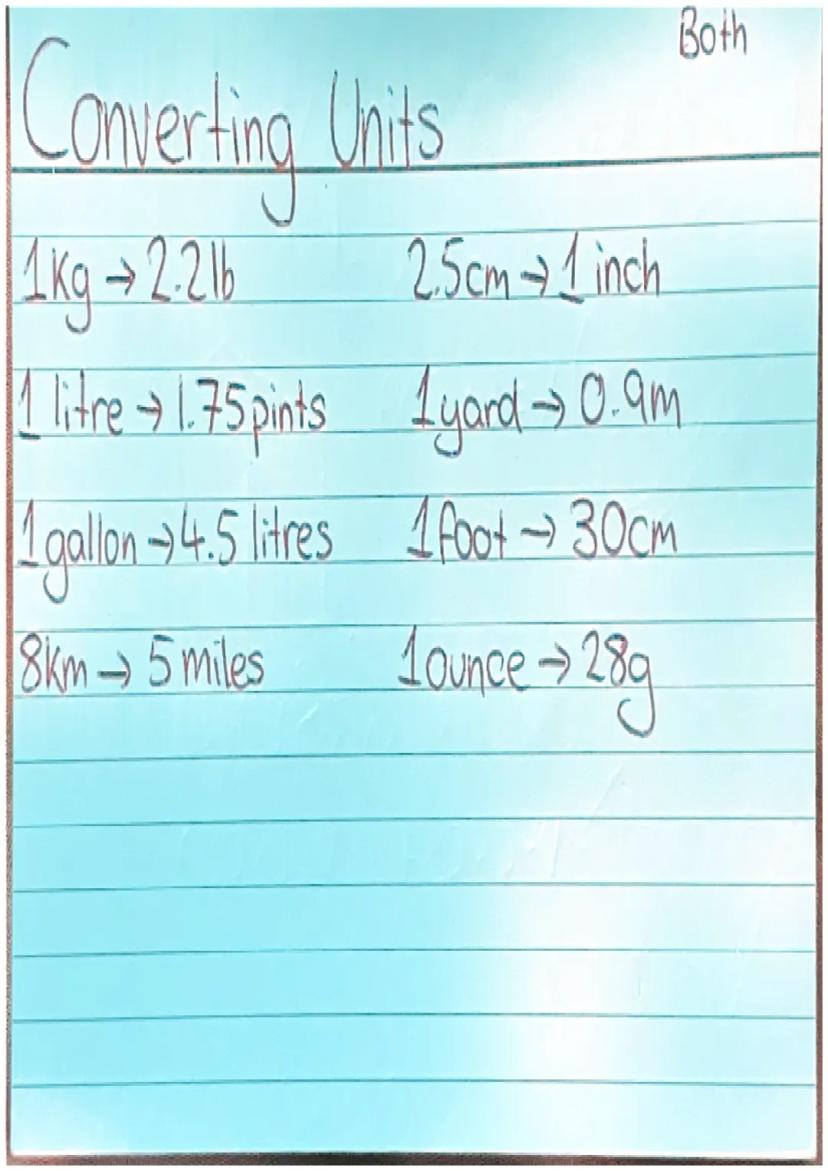 Both
Converting Units
1kg → 2.2lb 2.5cm → 1 inch
1 litre → 1.75 pints 1 yard → 0.9m
1 gallon → 4.5 litres 1 foot → 30cm
8km → 5 miles 1 ounce → 28g